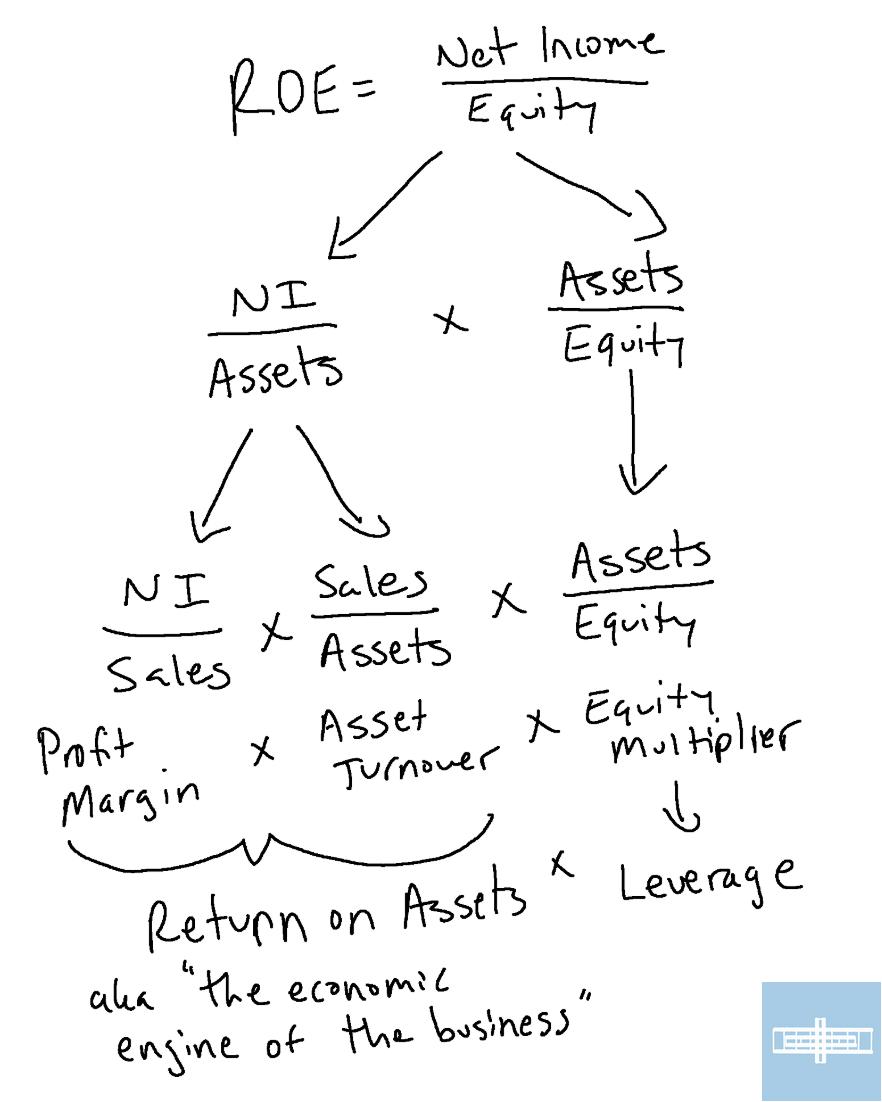 ROE = Net Income
Equity
NI
Assets
x
Assets
Equity
NI
Sales
x
Sales
Assets
x
Assets
Equity
Profit
Margin
x
Asset
Turnover
x
Equity
Multiplier
Return on Assets x Leverage
aka "the economic
engine of the business"